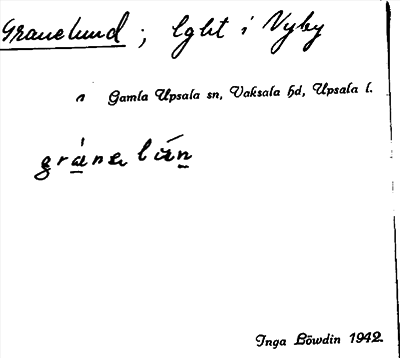 Granelund; lght i Vyby
Gamla Upsala sn, Vaksala hd, Upsala l.
Inga Löwdin 1942.